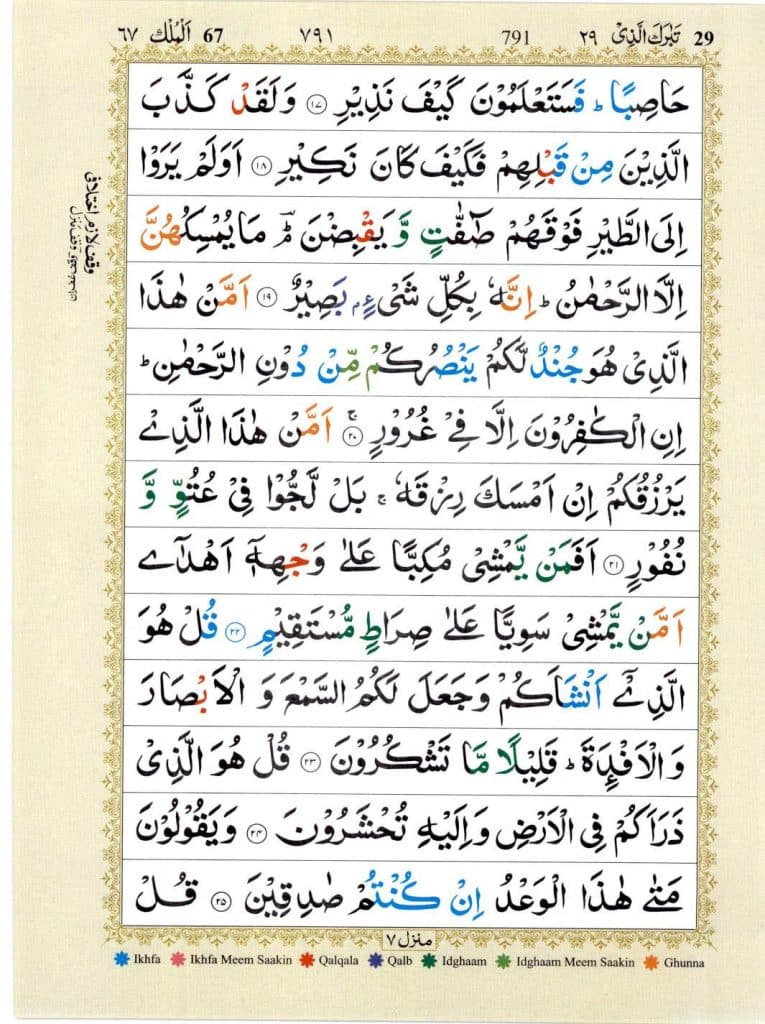 29 تَبٰرَكَ الَّذِىْ ٢٩ 791 ٧٩١ 67 اَلْمُلْك ٦٧
حَاصِبًا ؕ فَسَتَعْلَمُوْنَ كَيْفَ نَذِيْرِ ۝۱۷ وَلَقَدْ كَذَّبَ
الَّذِيْنَ مِنْ قَبْلِهِمْ فَكَيْفَ كَانَ نَكِيْرِ ۝۱۸ اَوَلَمْ يَرَوْا
اِلَى الطَّيْرِ فَوْقَهُمْ صٰٓفّٰتٍ وَّ يَقْبِضْنَ ؔۘ مَا يُمْسِكُهُنَّ
اِلَّا الرَّحْمٰنُ ؕ اِنَّهٗ بِكُلِّ شَىْءٍۭ بَصِيْرٌ ۝۱۹ اَمَّنْ هٰذَا
الَّذِىْ هُوَ جُنْدٌ لَّكُمْ يَنْصُرُكُمْ مِّنْ دُوْنِ الرَّحْمٰنِ ؕ
اِنِ الْكٰفِرُوْنَ اِلَّا فِىْ غُرُوْرٍ ۚ ۝۲۰ اَمَّنْ هٰذَا الَّذِىْ
يَرْزُقُكُمْ اِنْ اَمْسَكَ رِزْقَهٗ ۚ بَلْ لَّجُّوْا فِىْ عُتُوٍّ وَّ
نُفُوْرٍ ۝۲۱ اَفَمَنْ يَّمْشِىْ مُكِبًّا عَلٰى وَجْهِهٖۤ اَهْدٰٓى
اَمَّنْ يَّمْشِىْ سَوِيًّا عَلٰى صِرَاطٍ مُّسْتَقِيْمٍ ۝۲۲ قُلْ هُوَ
الَّذِىْۤ اَنْشَاَكُمْ وَجَعَلَ لَكُمُ السَّمْعَ وَ الْاَبْصَارَ
وَالْاَفْـِٕدَةَ ؕ قَلِيْلًا مَّا تَشْكُرُوْنَ ۝۲۳ قُلْ هُوَ الَّذِىْ
ذَرَاَكُمْ فِى الْاَرْضِ وَاِلَيْهِ تُحْشَرُوْنَ ۝۲۴ وَيَقُوْلُوْنَ
مَتٰى هٰذَا الْوَعْدُ اِنْ كُنْتُمْ صٰدِقِيْنَ ۝۲۵ قُلْ
وقف لازم اختلافی
منزل ٧
Ikhfa Ikhfa Meem Saakin Qalqala Qalb Idghaam Idghaam Meem Saakin Ghunna